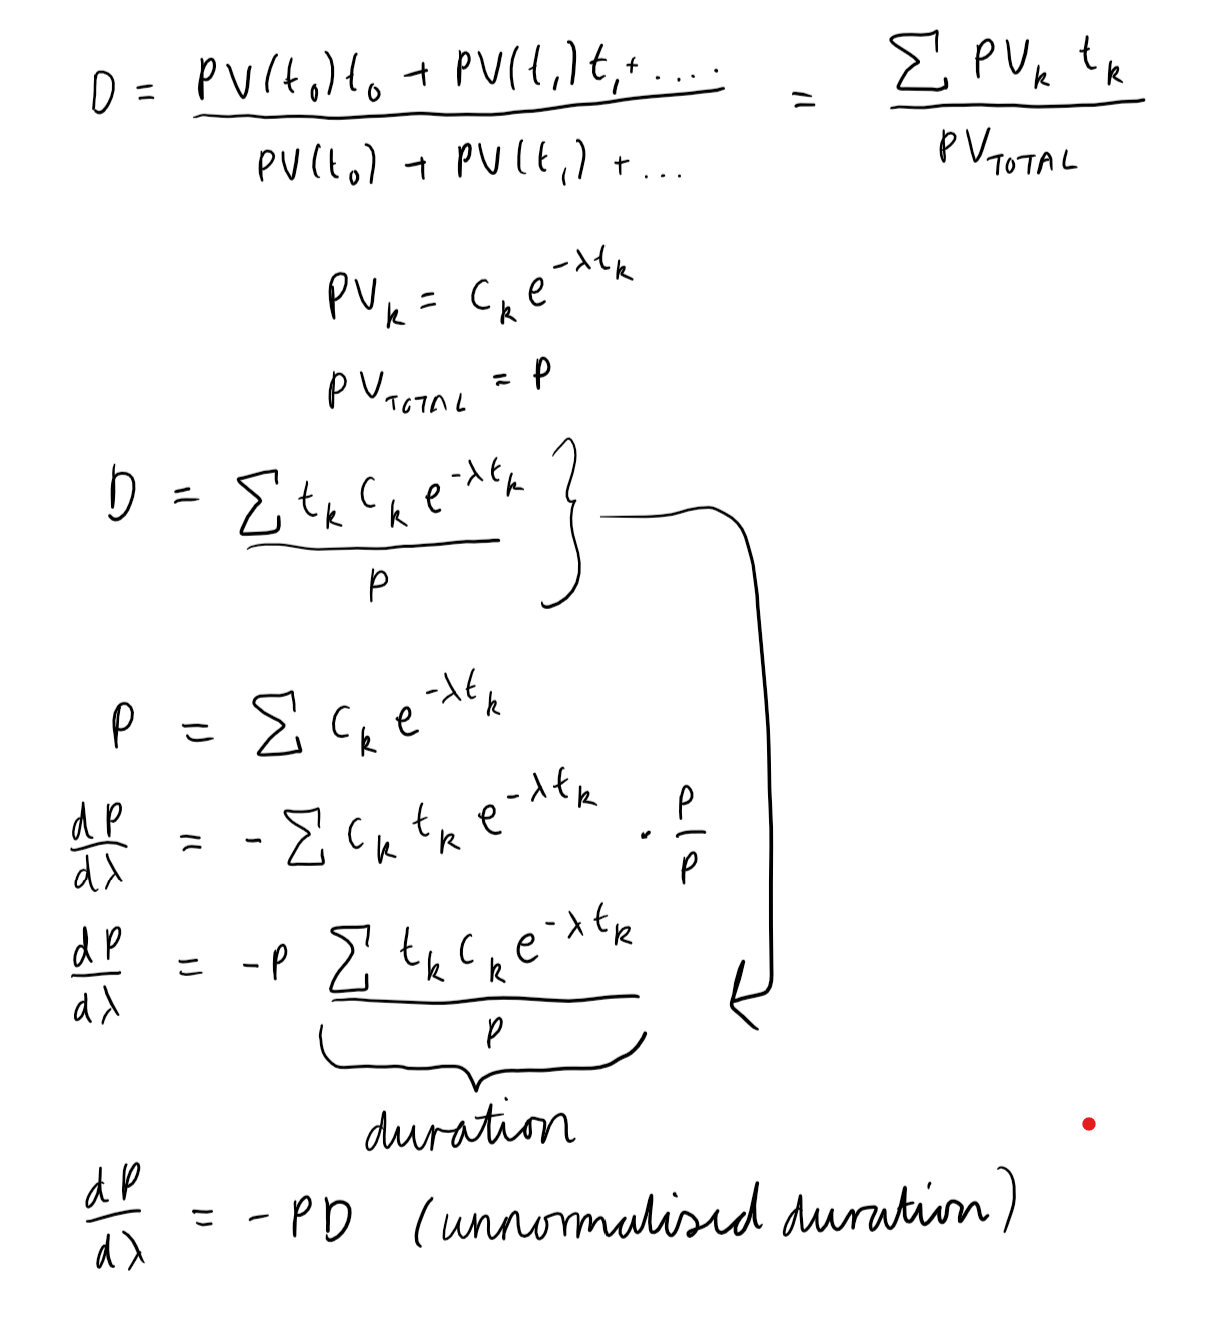 D = (PV(t₀)t₀ + PV(t₁)t₁ + ....) / (PV(t₀) + PV(t₁) + ...) = (∑ PVₖ tₖ) / PV_TOTAL
PVₖ = Cₖ e^(-λtₖ)
PV_TOTAL = P
D = (∑ tₖ Cₖ e^(-λtₖ)) / P }
P = ∑ Cₖ e^(-λtₖ)
dP/dλ = - ∑ Cₖ tₖ e^(-λtₖ) · P/P
dP/dλ = -P (∑ tₖ Cₖ e^(-λtₖ)) / P
duration
dP/dλ = - PD (unnormalised duration)